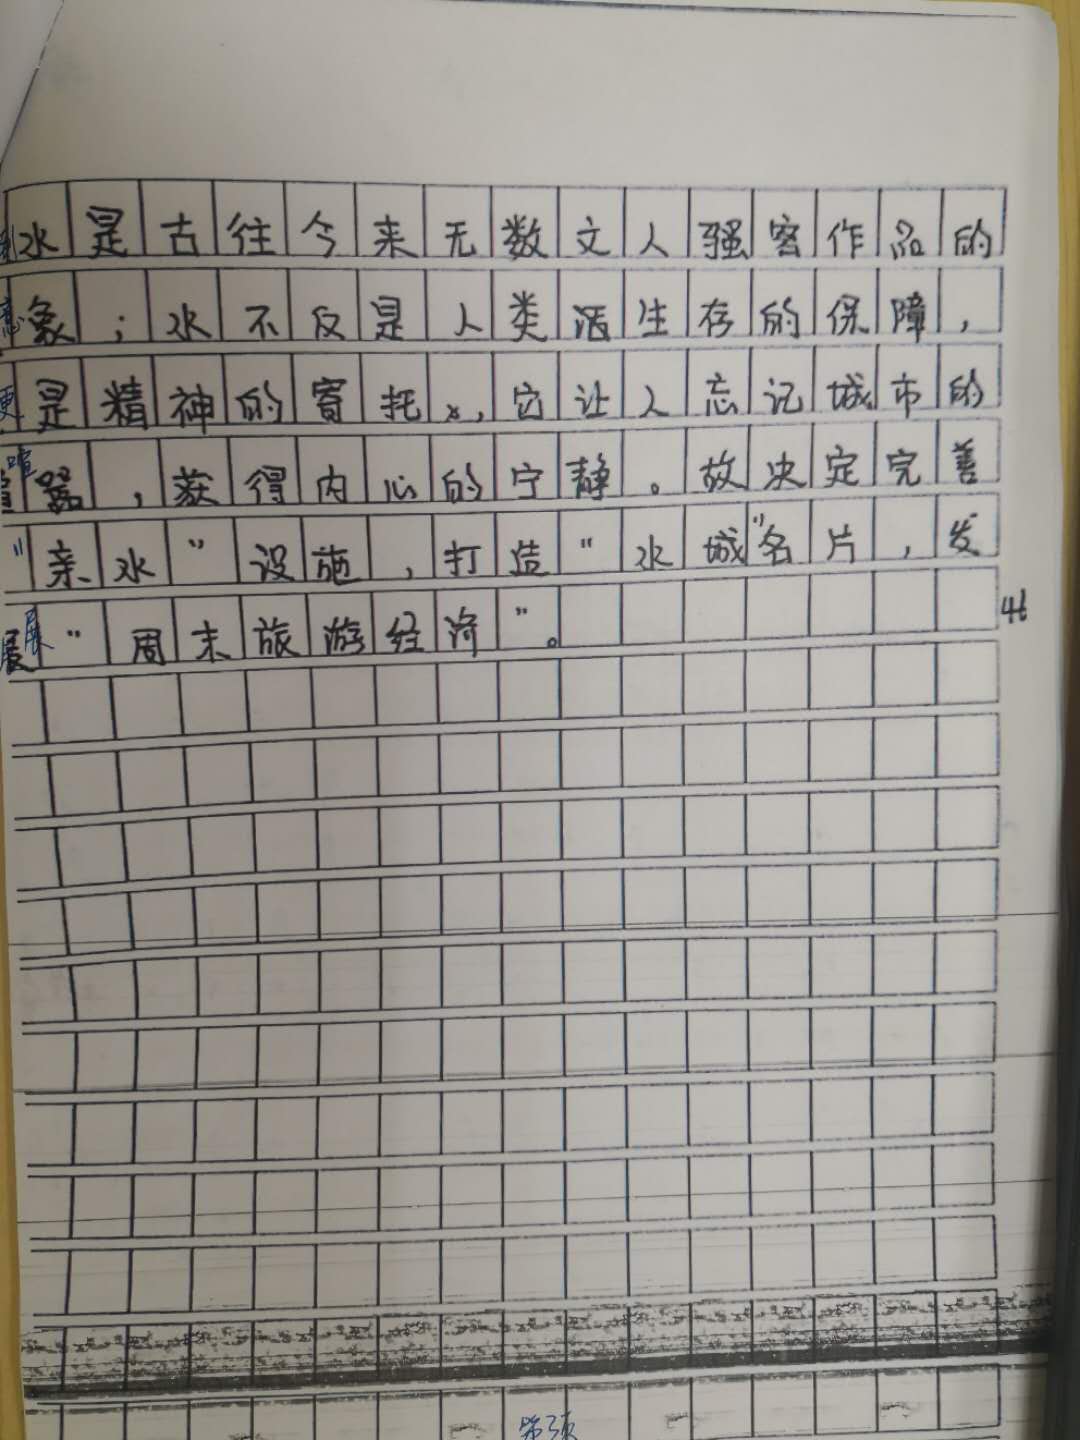 水是古往今来无数文人骚客作品的
意象；水不仅是人类活生存的保障，
更是精神的寄托，它让人忘记城市的
喧嚣，获得内心的宁静。故决定完善
"亲水"设施，打造"水城"名片，发
展"周末旅游经济"。